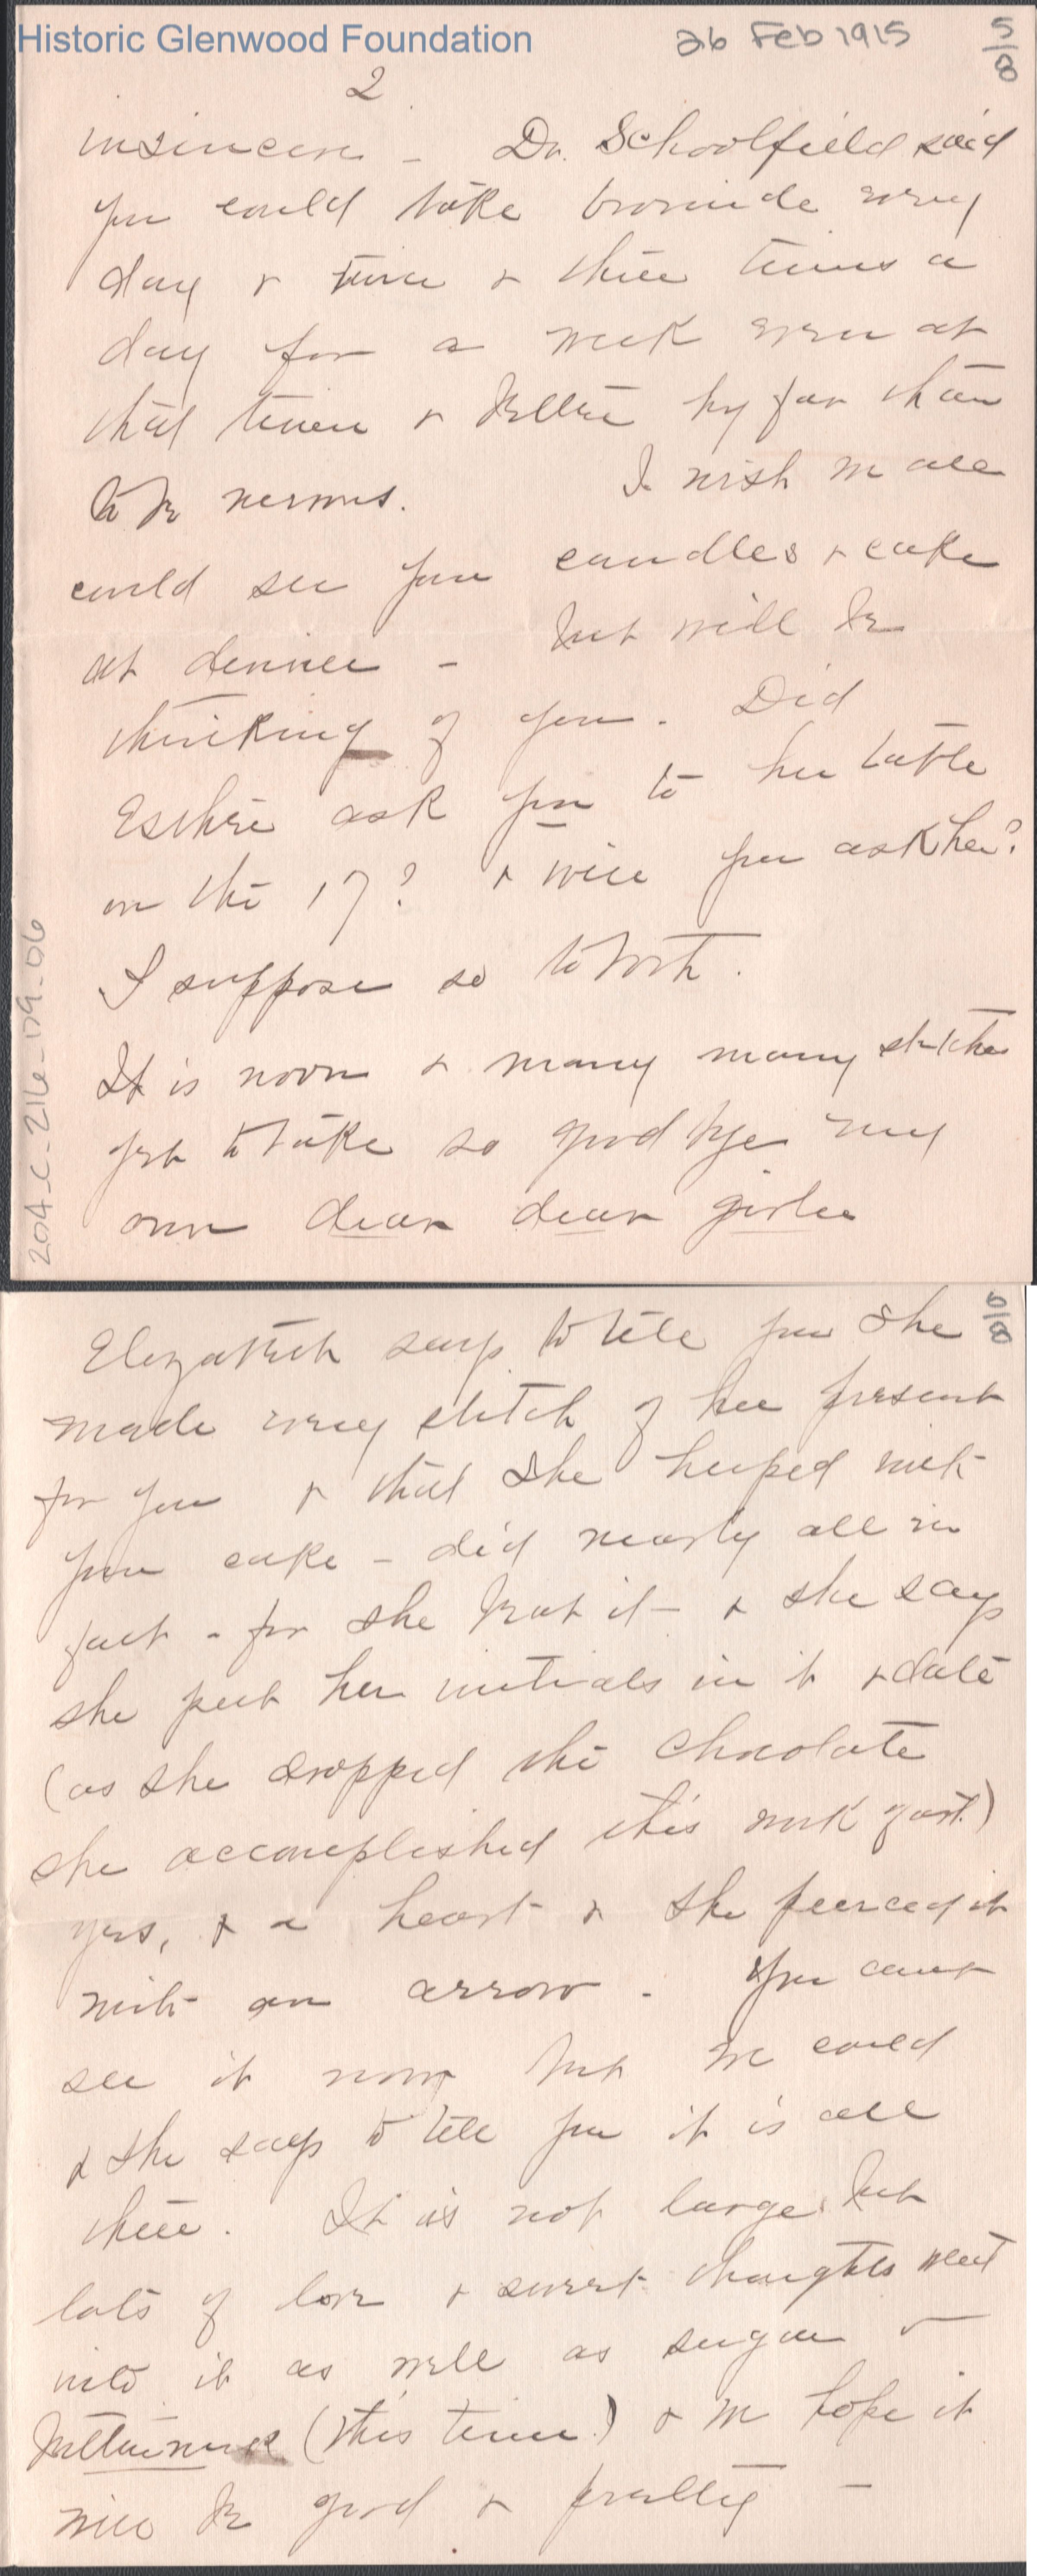 Historic Glenwood Foundation
26 Feb 1915
5/8
2
insincere - Dr. Schoolfield said
you could take bromide every
day & twice & three times a
day for a week even at
that time & better by far than
to be nervous. I wish we all
could see your candles & cake
at dinner - but will be
thinking of you. Did
Esthre ask you to her table
on the 17? & will you ask her?
I suppose so to both.
It is noon & many many stitches
yet to take so good bye my
own dear dear girlee
204-C-216-09-06
5/8
Elizabeth says to tell you she
made every stitch of her present
for you & that she helped with
your cake - did nearly all in
fact - for she beat it - & she says
she put her initials in it & date
(as she dropped the chocolate
she accomplished this work of art)
yes, & a heart & she peirced it
with an arrow. You cant
see it now but we could
& she says to tell you it is all
there. It is not large but
lots of love & sweet thoughts went
into it as well as sugar &
(this time) & we hope it
will be good & pretty -